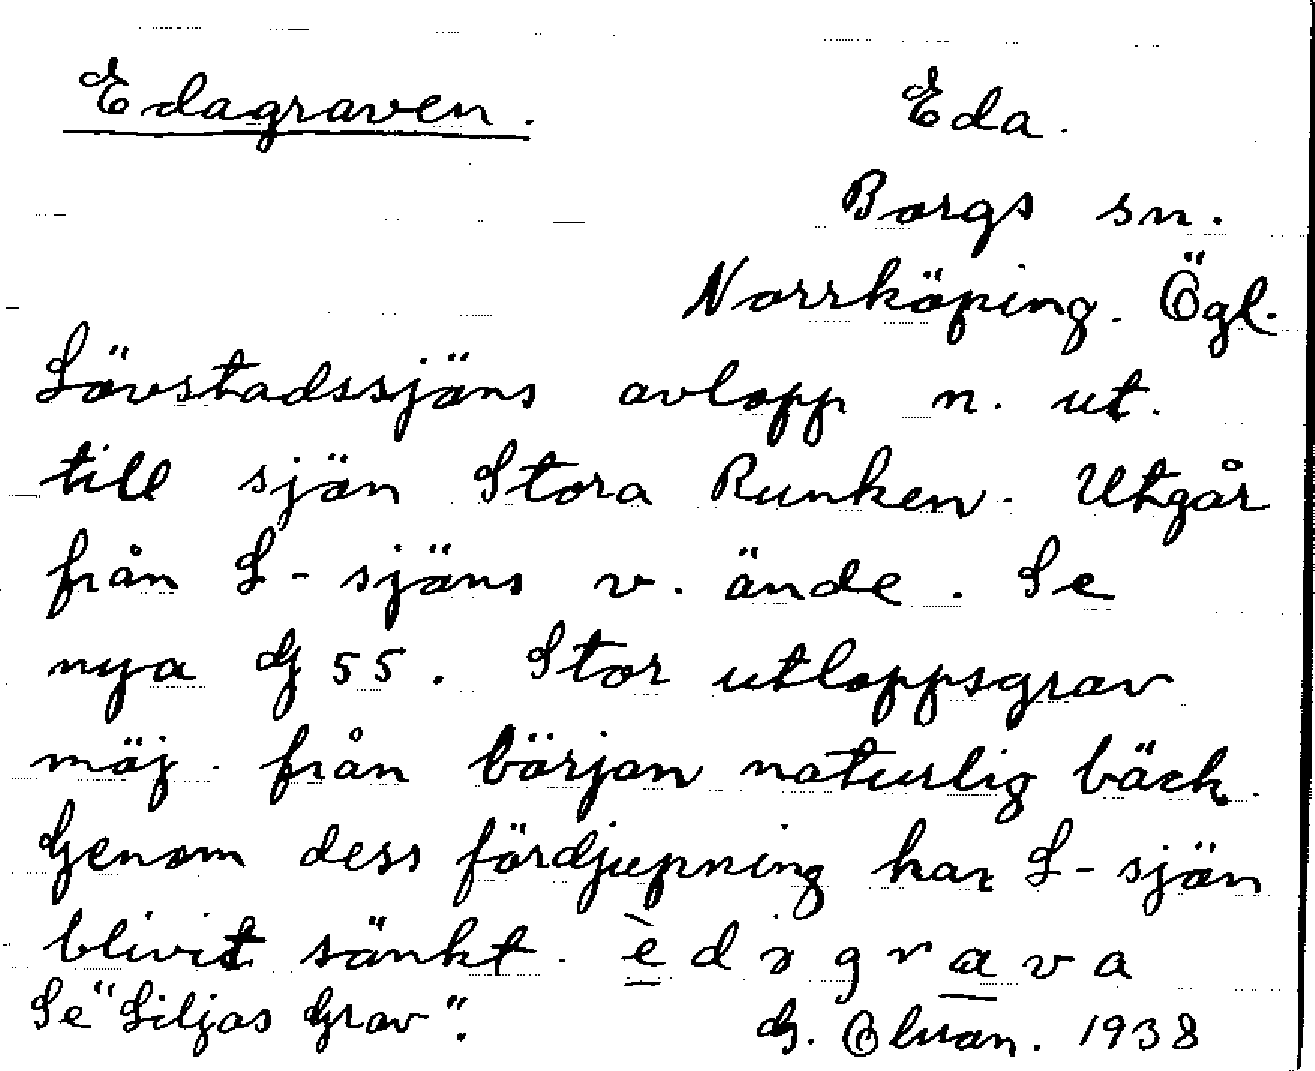 Edagraven. Eda.
Borgs sn.
Norrköping. Ögl.
Lövstadssjöns avlopp n. ut.
till sjön Stora Runken. Utgår
från L-sjöns v. ände. Se
nya G 55. Stor utloppsgrav
möj. från början naturlig bäck.
Genom dess fördjupning har L-sjön
blivit sänkt. èdagrava
Se "Liljas Grav". G. 1938